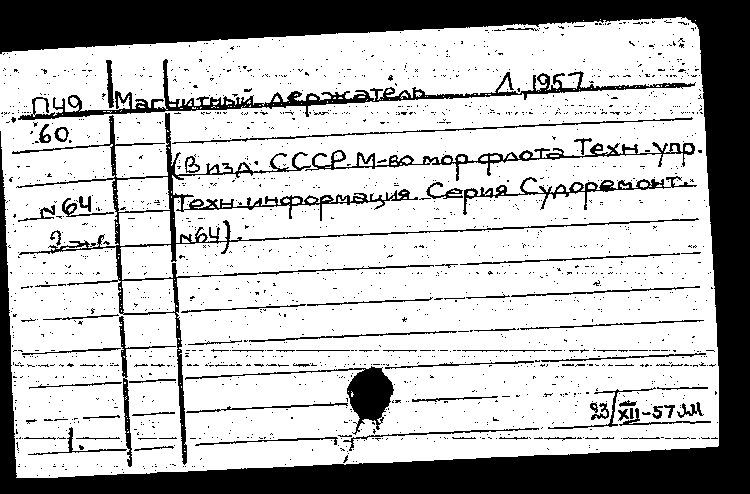 П49 Магнитный держатель Л., 1957.
60.
(В изд: СССР. М-во мор. флота. Техн. упр.
№64. Техн. информация. Серия Судоремонт.
2 экз. №64).
23/XII-57 ЛМ
1.